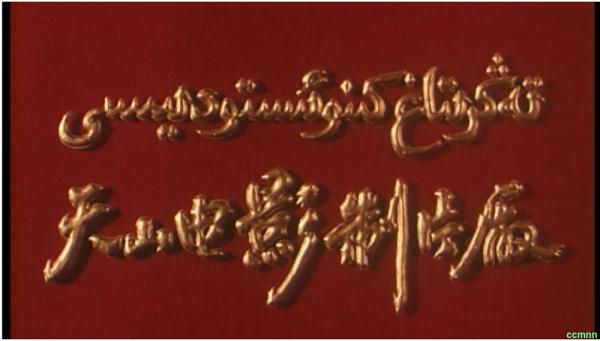 تەڭرىتاغ كىنو ئىستودىيىسى
天山电影制片廠
ccmnn